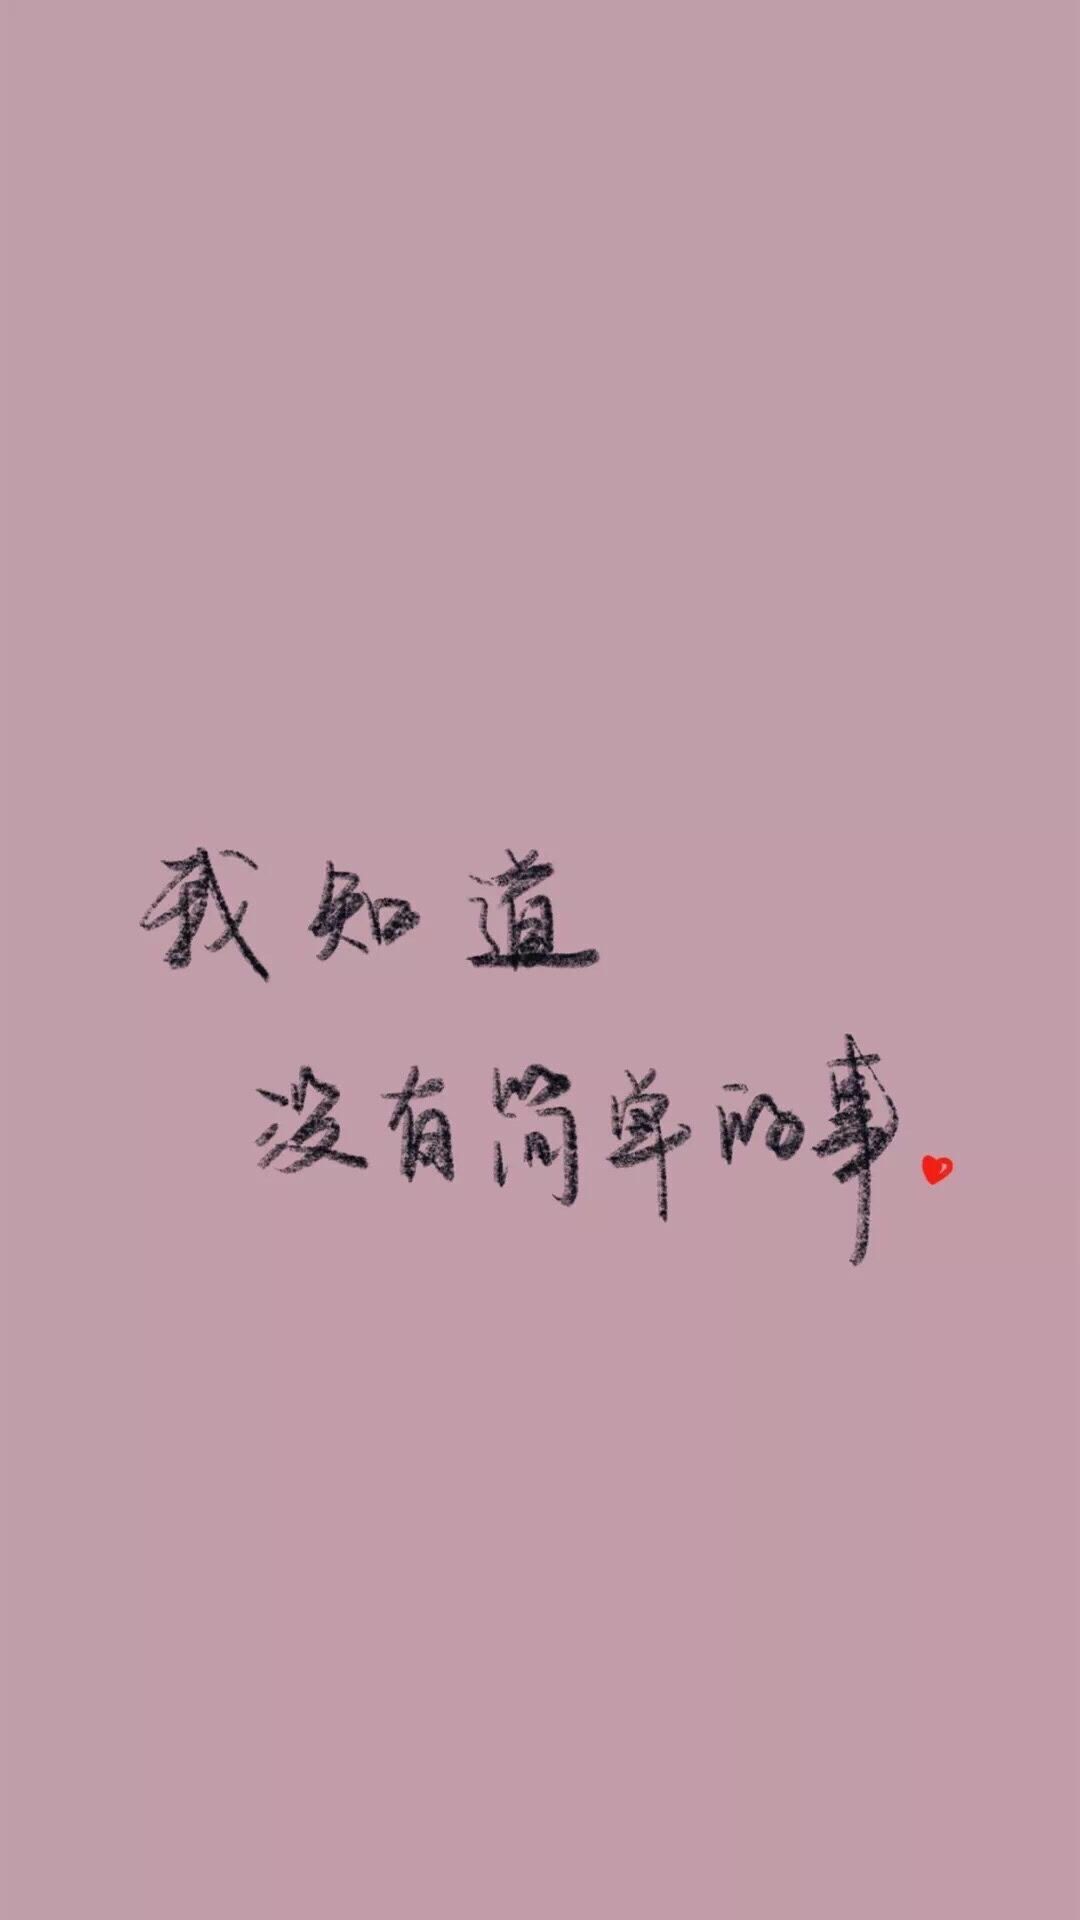 我知道
没有简单的事